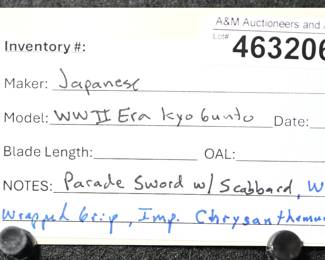 A&M Auctioneers and
Inventory #:
Lot# 463206
Maker: Japanese
Model: WWII Era Kyo Gunto Date:
Blade Length: OAL:
NOTES: Parade Sword w/ Scabbard, W
Wrapped Grip, Imp. Chrysanthemum